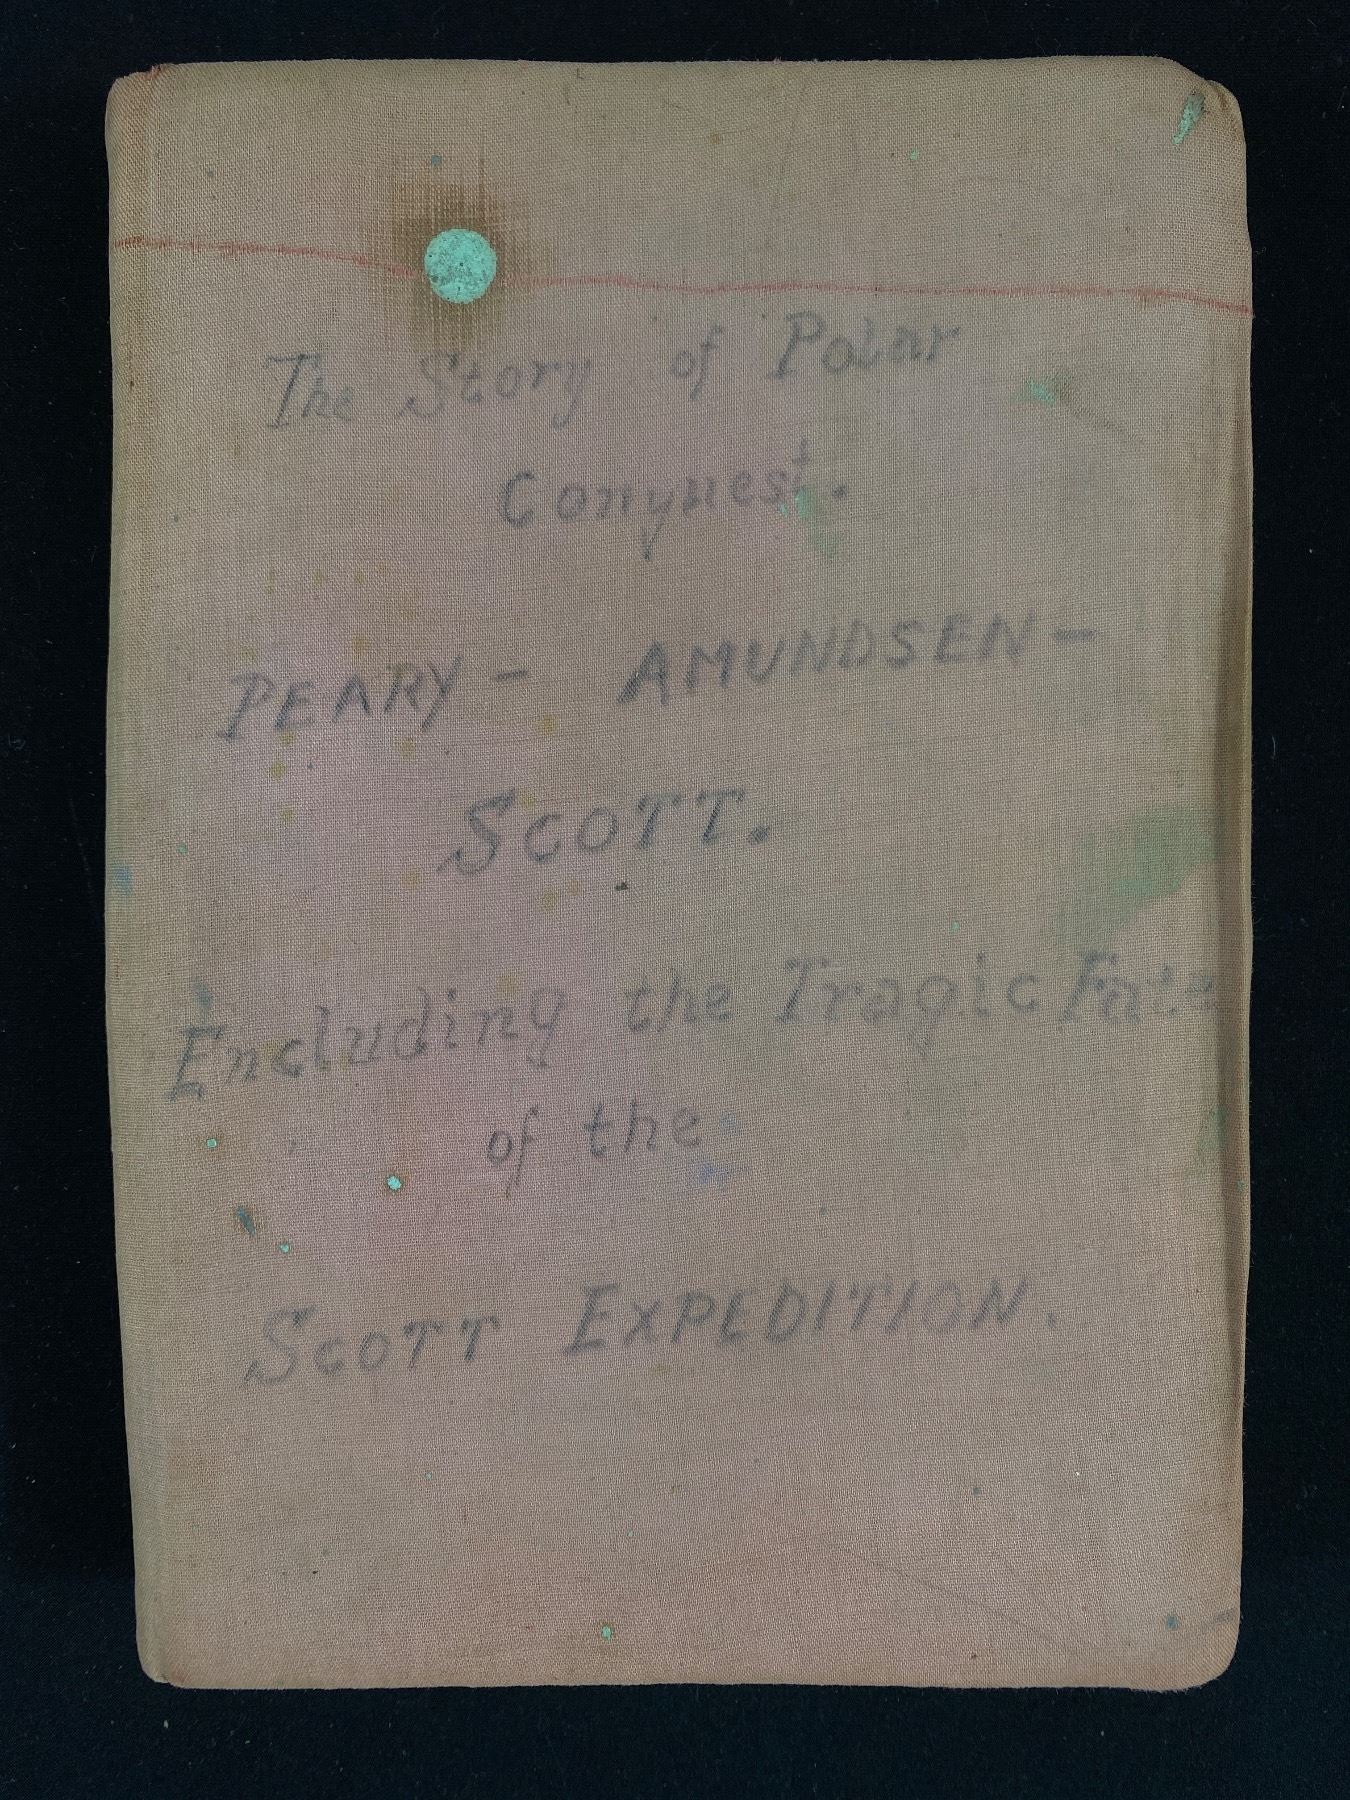 The Story of Polar
Conquest.
PEARY - AMUNDSEN -
SCOTT.
Encluding the Tragic Fate
of the
SCOTT EXPEDITION.